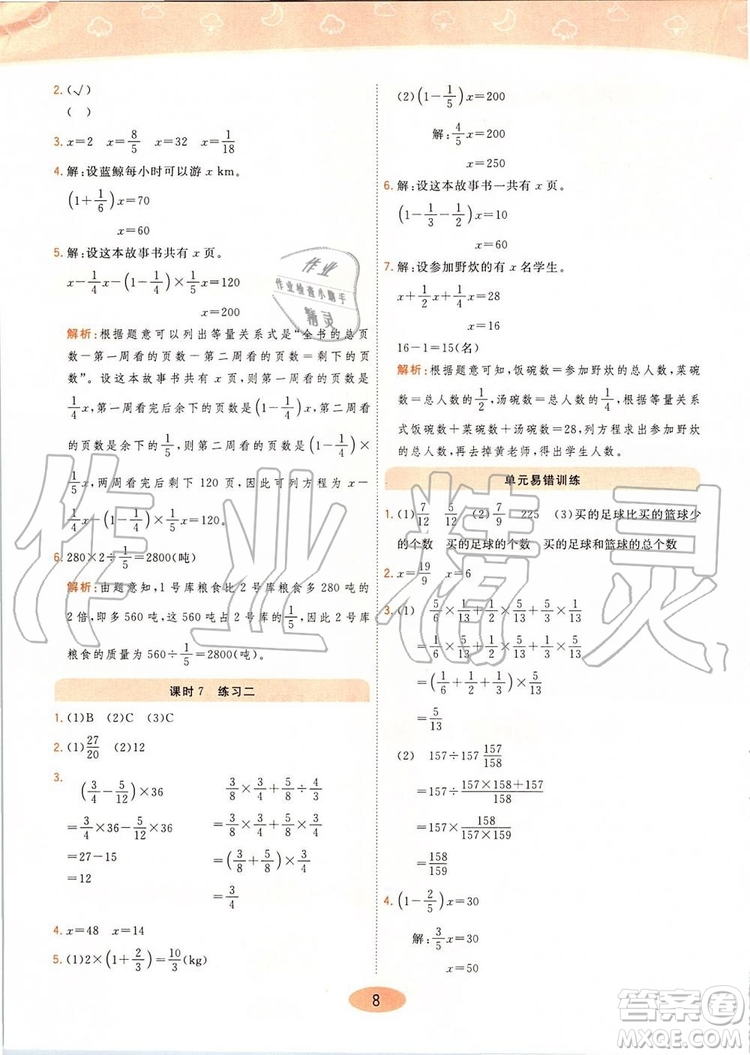 2. (√)
( )
3. x=2 x=8/5 x=32 x=1/18
4. 解:设蓝鲸每小时可以游 x km。
(1+1/6)x=70
x=60
5. 解:设这本故事书共有 x 页。
x-1/4x-(1-1/4)×1/5x=120
x=200
解析:根据题意可以列出等量关系式是“全书的总页
数-第一周看的页数-第二周看的页数=剩下的页
数”。设这本故事书共有 x 页,第一周看的页数为
1/4x,第一周看完后余下的页数为(1-1/4)x,第二周
看的页数是余下的1/5,第二周看的页数为(1-1/4)×
1/5x,最后剩下 120 页,由此可列方程为 x-1/4x-
(1-1/4)×1/5x=120。
6. 280×2÷1/5=2800(吨)
解析:由题意知,1 号库粮食比 2 号库多 280 吨的
2 倍,即多 560 吨,这 560 吨占 2 号库的1/5,1 号库
粮食的质量为 560÷1/5=2800(吨)。
课时 7 练习二
1. (1)B (2)C (3)B
2. (1)27/20 (2)12
3.
(3/4-5/12)×36 3/8×3/4+5/8÷4/3
=3/4×36-5/12×36 =3/8×3/4+5/8×3/4
=27-15 =(3/8+5/8)×3/4
=12 =3/4
4. x=48 x=14
5. (1)2×(1+2/3)=10/3(kg)
(2)(1-1/5)x=200
解:4/5x=200
x=250
6. 解:设这本故事书一共有 x 页。
(1-1/3-1/2)x=10
x=60
7. 解:设参加野炊的有 x 名学生。
x+1/2x+1/4x=28
x=16
16-1=15(名)
解析:根据题意知,饭碗数=参加野炊的总人数,菜碗
数=总人数的1/2,汤碗数=总人数的1/4,根据等量关系
式饭碗数+菜碗数+汤碗数=28,列方程求出参加野炊
的总人数,再去掉黄老师,得出学生人数。
单元易错训练
1. (1)7/12 5/12 (2)7/9 225 (3)买的足球比买的篮球少
的个数 买的足球的个数 买的足球和篮球的总个数
2. x=19/9 x=6
3. (1) 5/6×1/13+1/2×5/13+5/13×5/18
=1/6×5/13+1/2×5/13+5/18×5/13
=(1/6+1/2+5/18)×5/13
(2) 157÷157 157/158
=157÷(157×158+157)/158
=157×158/(157×159)
=158/159
4. (1-2/5)x=30
解:3/5x=30
x=50
8
作业
作业检查小助手
精灵
作业精灵
答案圈
MXQE.COM